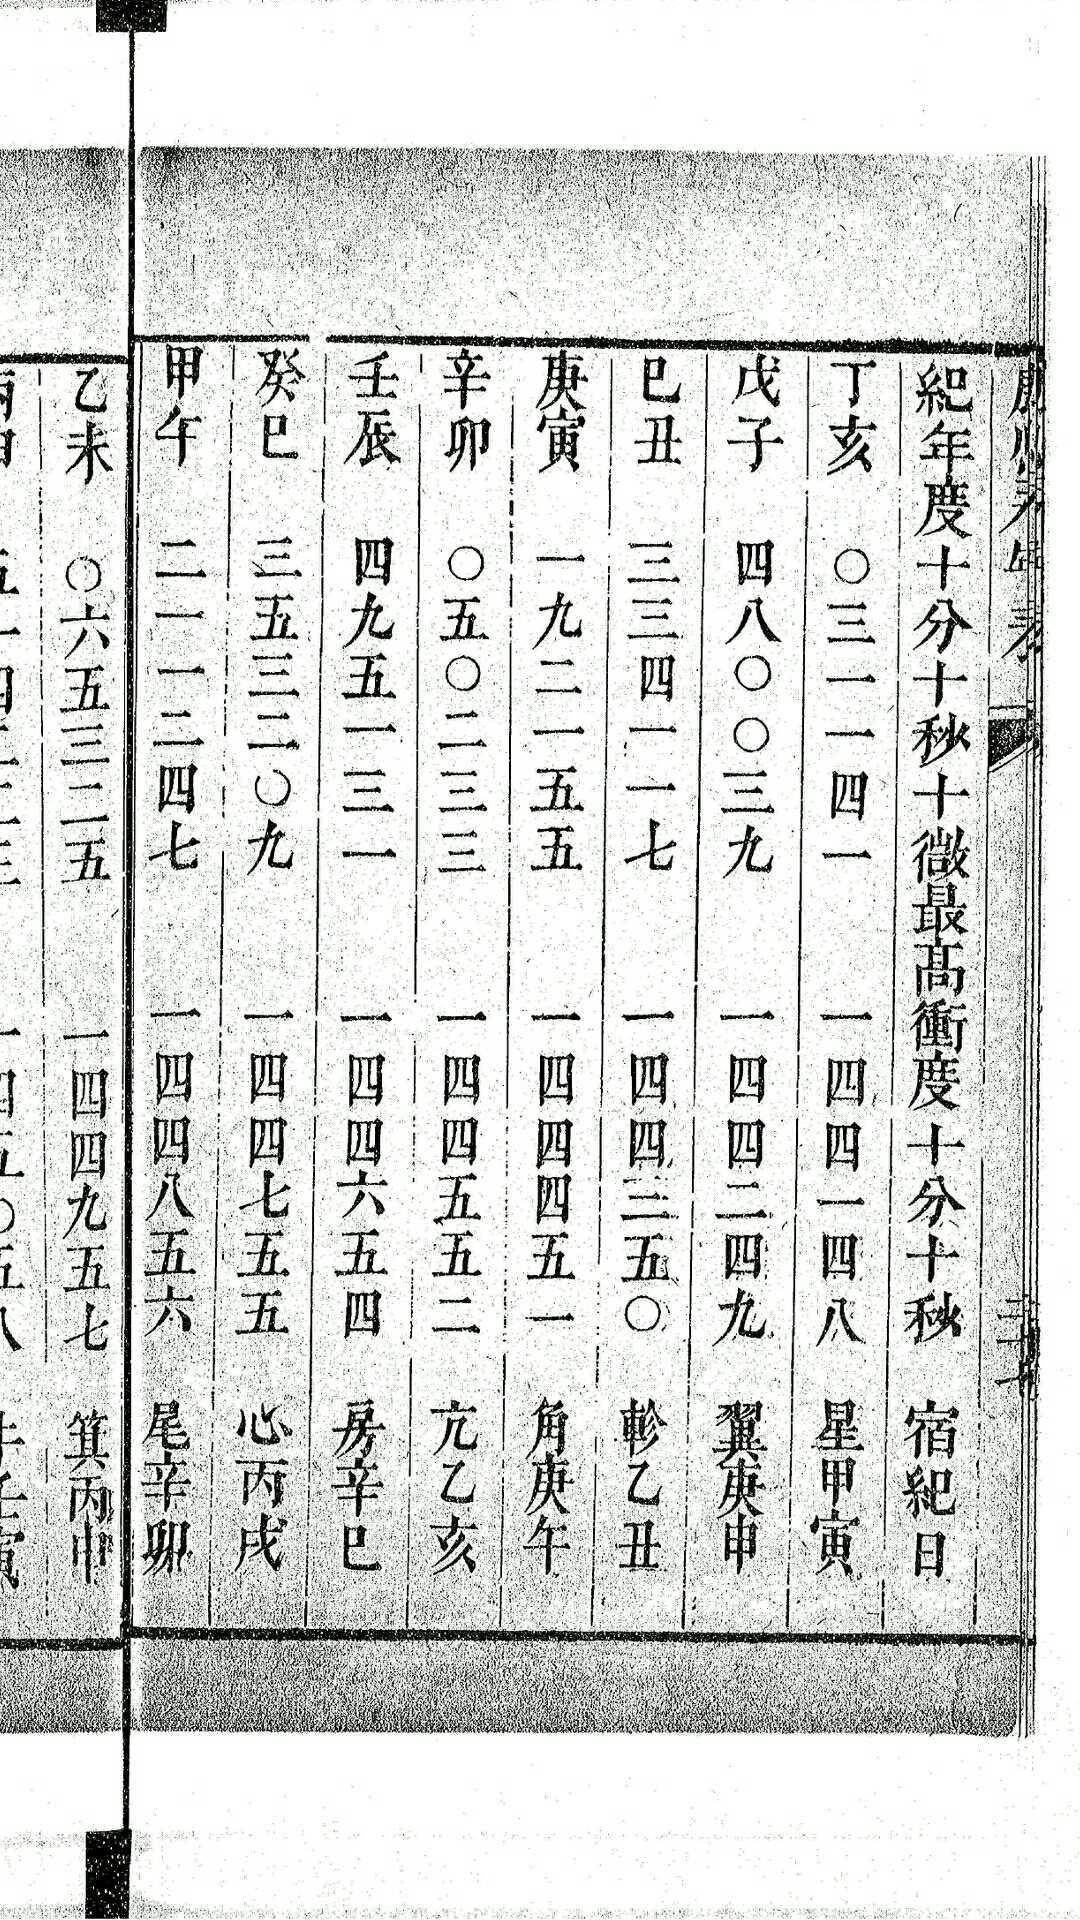 紀年度十分十秒十微最高衝度十分十秒宿紀日
丁亥　〇三一一四一　一四四一四八　星甲寅
戊子　四八〇〇三九　一四四二四九　翼庚申
巳丑　三三四一一七　一四四三五〇　軫乙丑
庚寅　一九二一五五　一四四四五一　角庚午
辛卯　〇五〇二三三　一四四五五二　亢乙亥
壬辰　四九五一三一　一四四六五四　房辛巳
癸巳　三五三二〇九　一四四七五五　心丙戌
甲午　二一一二四七　一四四八五六　尾辛卯
乙未　〇六五三二五　一四四九五七　箕丙申